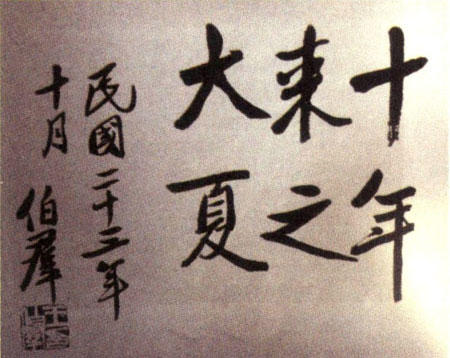 十年
来之
大夏
民國二十三年
十月 伯羣